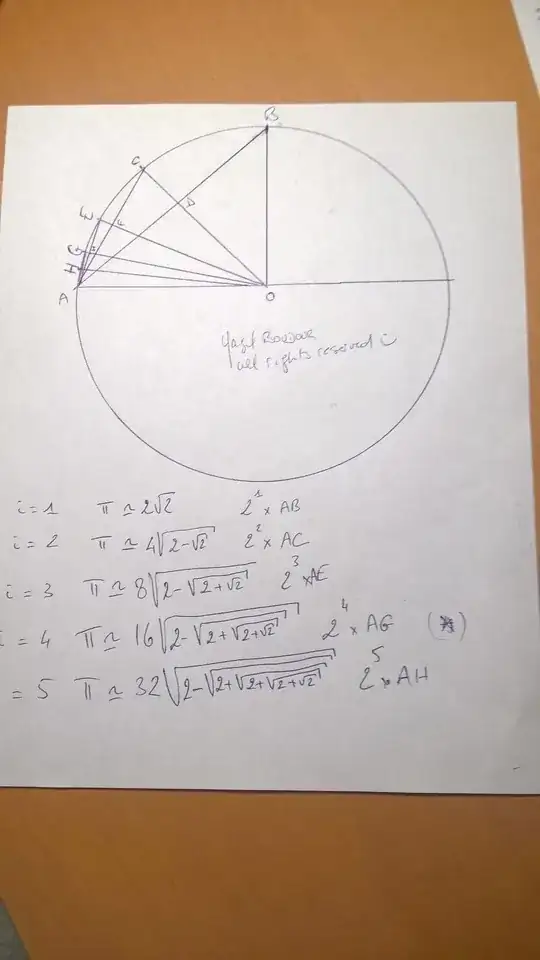 B
C
D
E
F
G
H
A
O
all rights reserved
i=1 π ≃ 2√2 2^1 × AB
i=2 π ≃ 4√(2-√2) 2^2 × AC
i=3 π ≃ 8√(2-√(2+√2)) 2^3 × AE
i=4 π ≃ 16√(2-√(2+√(2+√2))) 2^4 × AG (*)
=5 π ≃ 32√(2-√(2+√(2+√(2+√2)))) 2^5 × AH